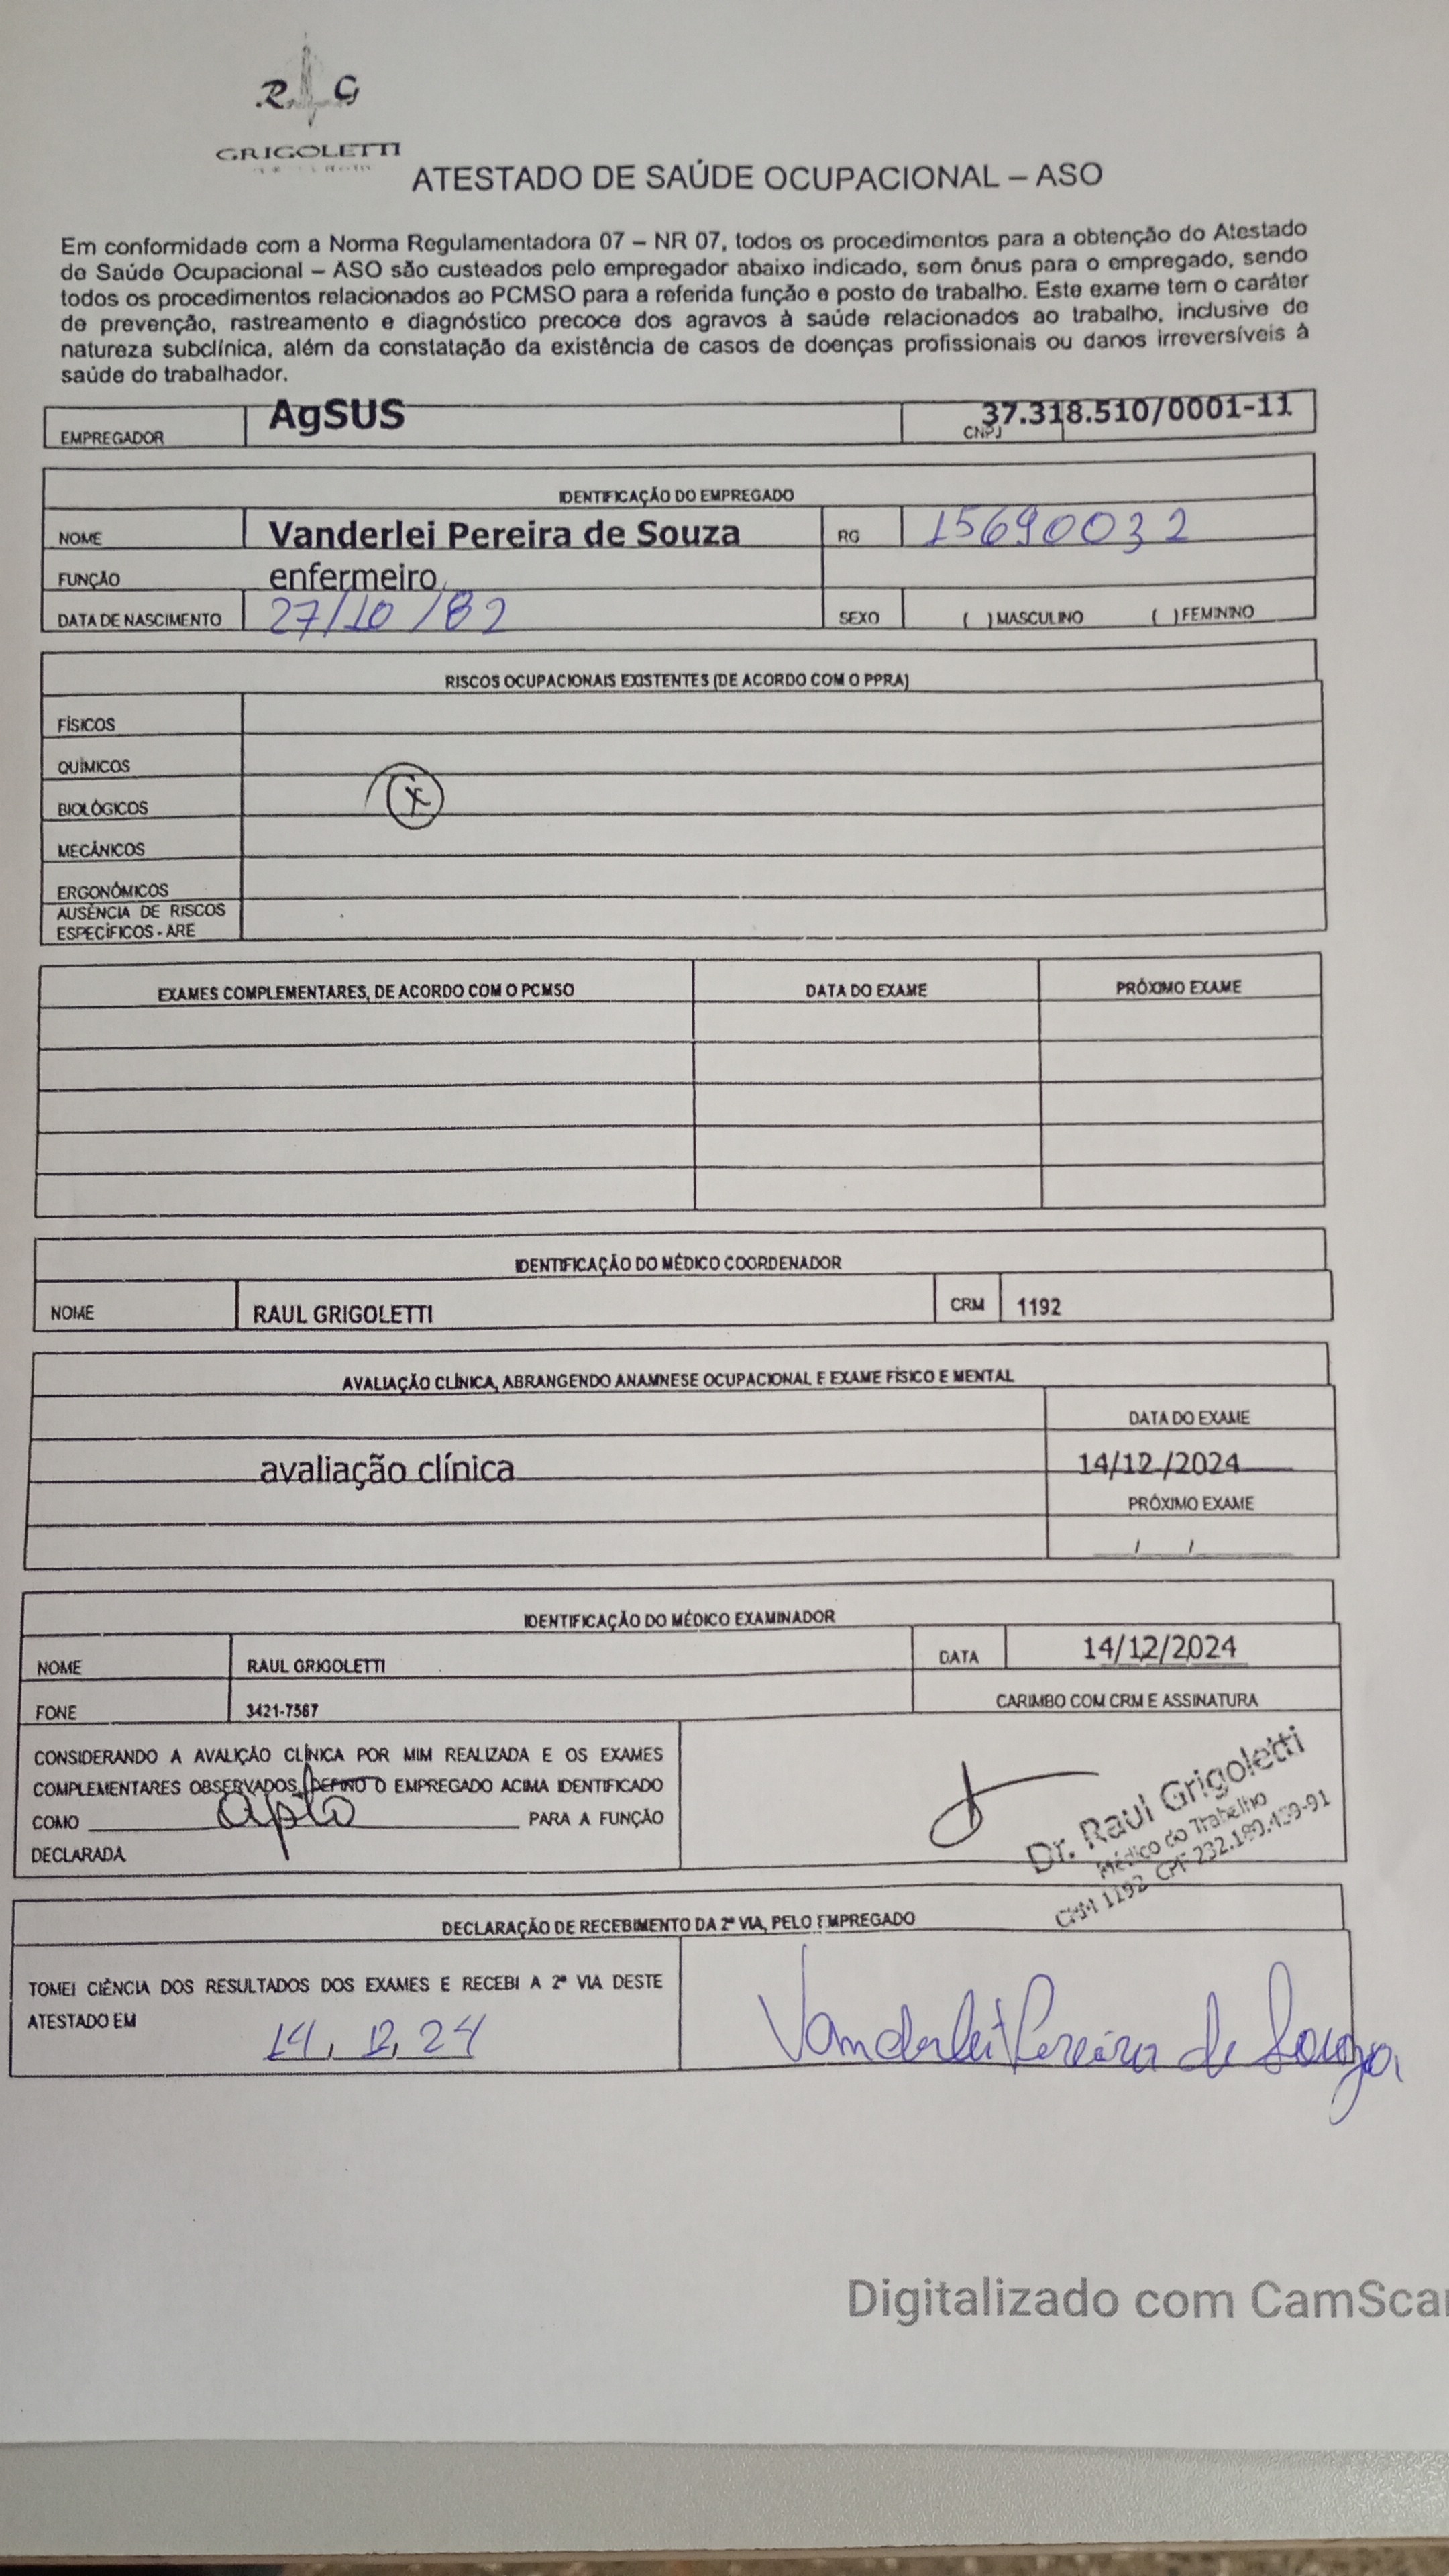 R G
GRIGOLETTI
ATESTADO DE SAÚDE OCUPACIONAL – ASO
Em conformidade com a Norma Regulamentadora 07 – NR 07, todos os procedimentos para a obtenção do Atestado
de Saúde Ocupacional – ASO são custeados pelo empregador abaixo indicado, sem ônus para o empregado, sendo
todos os procedimentos relacionados ao PCMSO para a referida função e posto de trabalho. Este exame tem o caráter
de prevenção, rastreamento e diagnóstico precoce dos agravos à saúde relacionados ao trabalho, inclusive de
natureza subclínica, além da constatação da existência de casos de doenças profissionais ou danos irreversíveis à
saúde do trabalhador.
EMPREGADOR AgSUS CNPJ 37.318.510/0001-11
IDENTIFICAÇÃO DO EMPREGADO
NOME Vanderlei Pereira de Souza RG 15690032
FUNÇÃO enfermeiro
DATA DE NASCIMENTO 27/10/82 SEXO ( ) MASCULINO ( ) FEMININO
RISCOS OCUPACIONAIS EXISTENTES (DE ACORDO COM O PPRA)
FÍSICOS
QUÍMICOS
BIOLÓGICOS x
MECÂNICOS
ERGONÔMICOS
AUSÊNCIA DE RISCOS
ESPECÍFICOS - ARE
EXAMES COMPLEMENTARES, DE ACORDO COM O PCMSO DATA DO EXAME PRÓXIMO EXAME
IDENTIFICAÇÃO DO MÉDICO COORDENADOR
NOME RAUL GRIGOLETTI CRM 1192
AVALIAÇÃO CLÍNICA, ABRANGENDO ANAMNESE OCUPACIONAL E EXAME FÍSICO E MENTAL
DATA DO EXAME
avaliação clínica 14/12/2024
PRÓXIMO EXAME
/ /
IDENTIFICAÇÃO DO MÉDICO EXAMINADOR
NOME RAUL GRIGOLETTI DATA 14/12/2024
FONE 3421-7567 CARIMBO COM CRM E ASSINATURA
CONSIDERANDO A AVALIÇÃO CLÍNICA POR MIM REALIZADA E OS EXAMES
COMPLEMENTARES OBSERVADOS, DEFINO O EMPREGADO ACIMA IDENTIFICADO
COMO apto PARA A FUNÇÃO
DECLARADA
Dr. Raul Grigoletti
Médico do Trabalho
CRM 1192 CPF 232.180.459-91
DECLARAÇÃO DE RECEBIMENTO DA 2ª VIA, PELO EMPREGADO
TOMEI CIÊNCIA DOS RESULTADOS DOS EXAMES E RECEBI A 2ª VIA DESTE
ATESTADO EM 14, 12, 24
Vanderlei Pereira de Souza
Digitalizado com CamScan